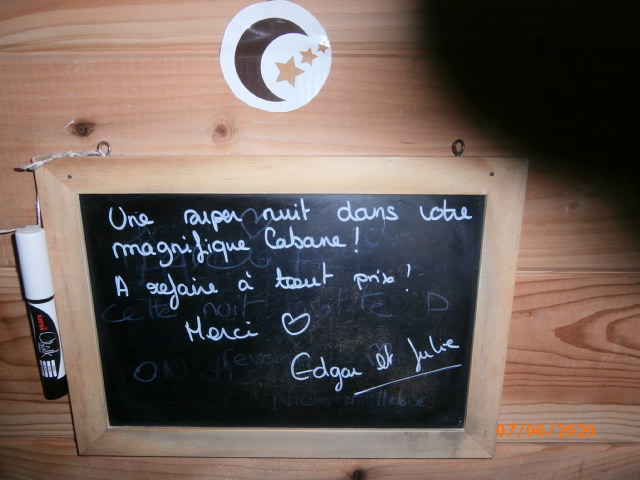 Une super nuit dans votre
magnifique Cabane !
A refaire à tout prix !
Merci ♡
Edgar et Julie
cette nuit
ON
uni
Chalk
07/06/2020